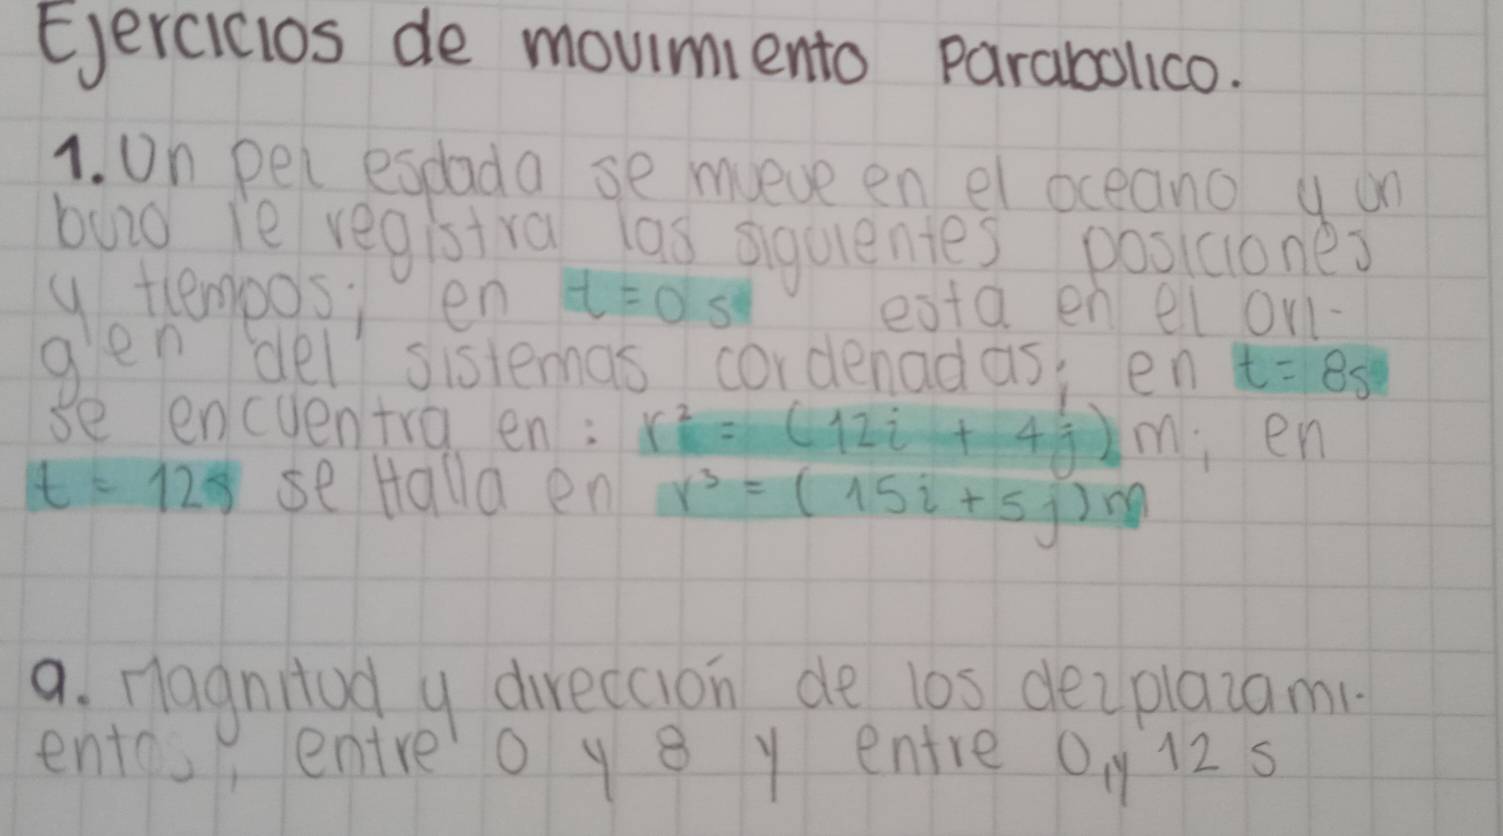 Ejercicios de movimiento Parabolico.
1. Un pez espada se mueve en el oceano y un
buzo le registra las siguientes posiciones
y tiempos; en t=0s esta en el ori-
gen del sistemas cordenadas; en t= 8s
se encuentra en: r² = (12i + 4j) m; en
t = 12s se Halla en r³ = (15i + 5j) m
a. Magnitud y dirección de los dezplazami-
entos, entre 0 y 8 y entre 0, y 12 s